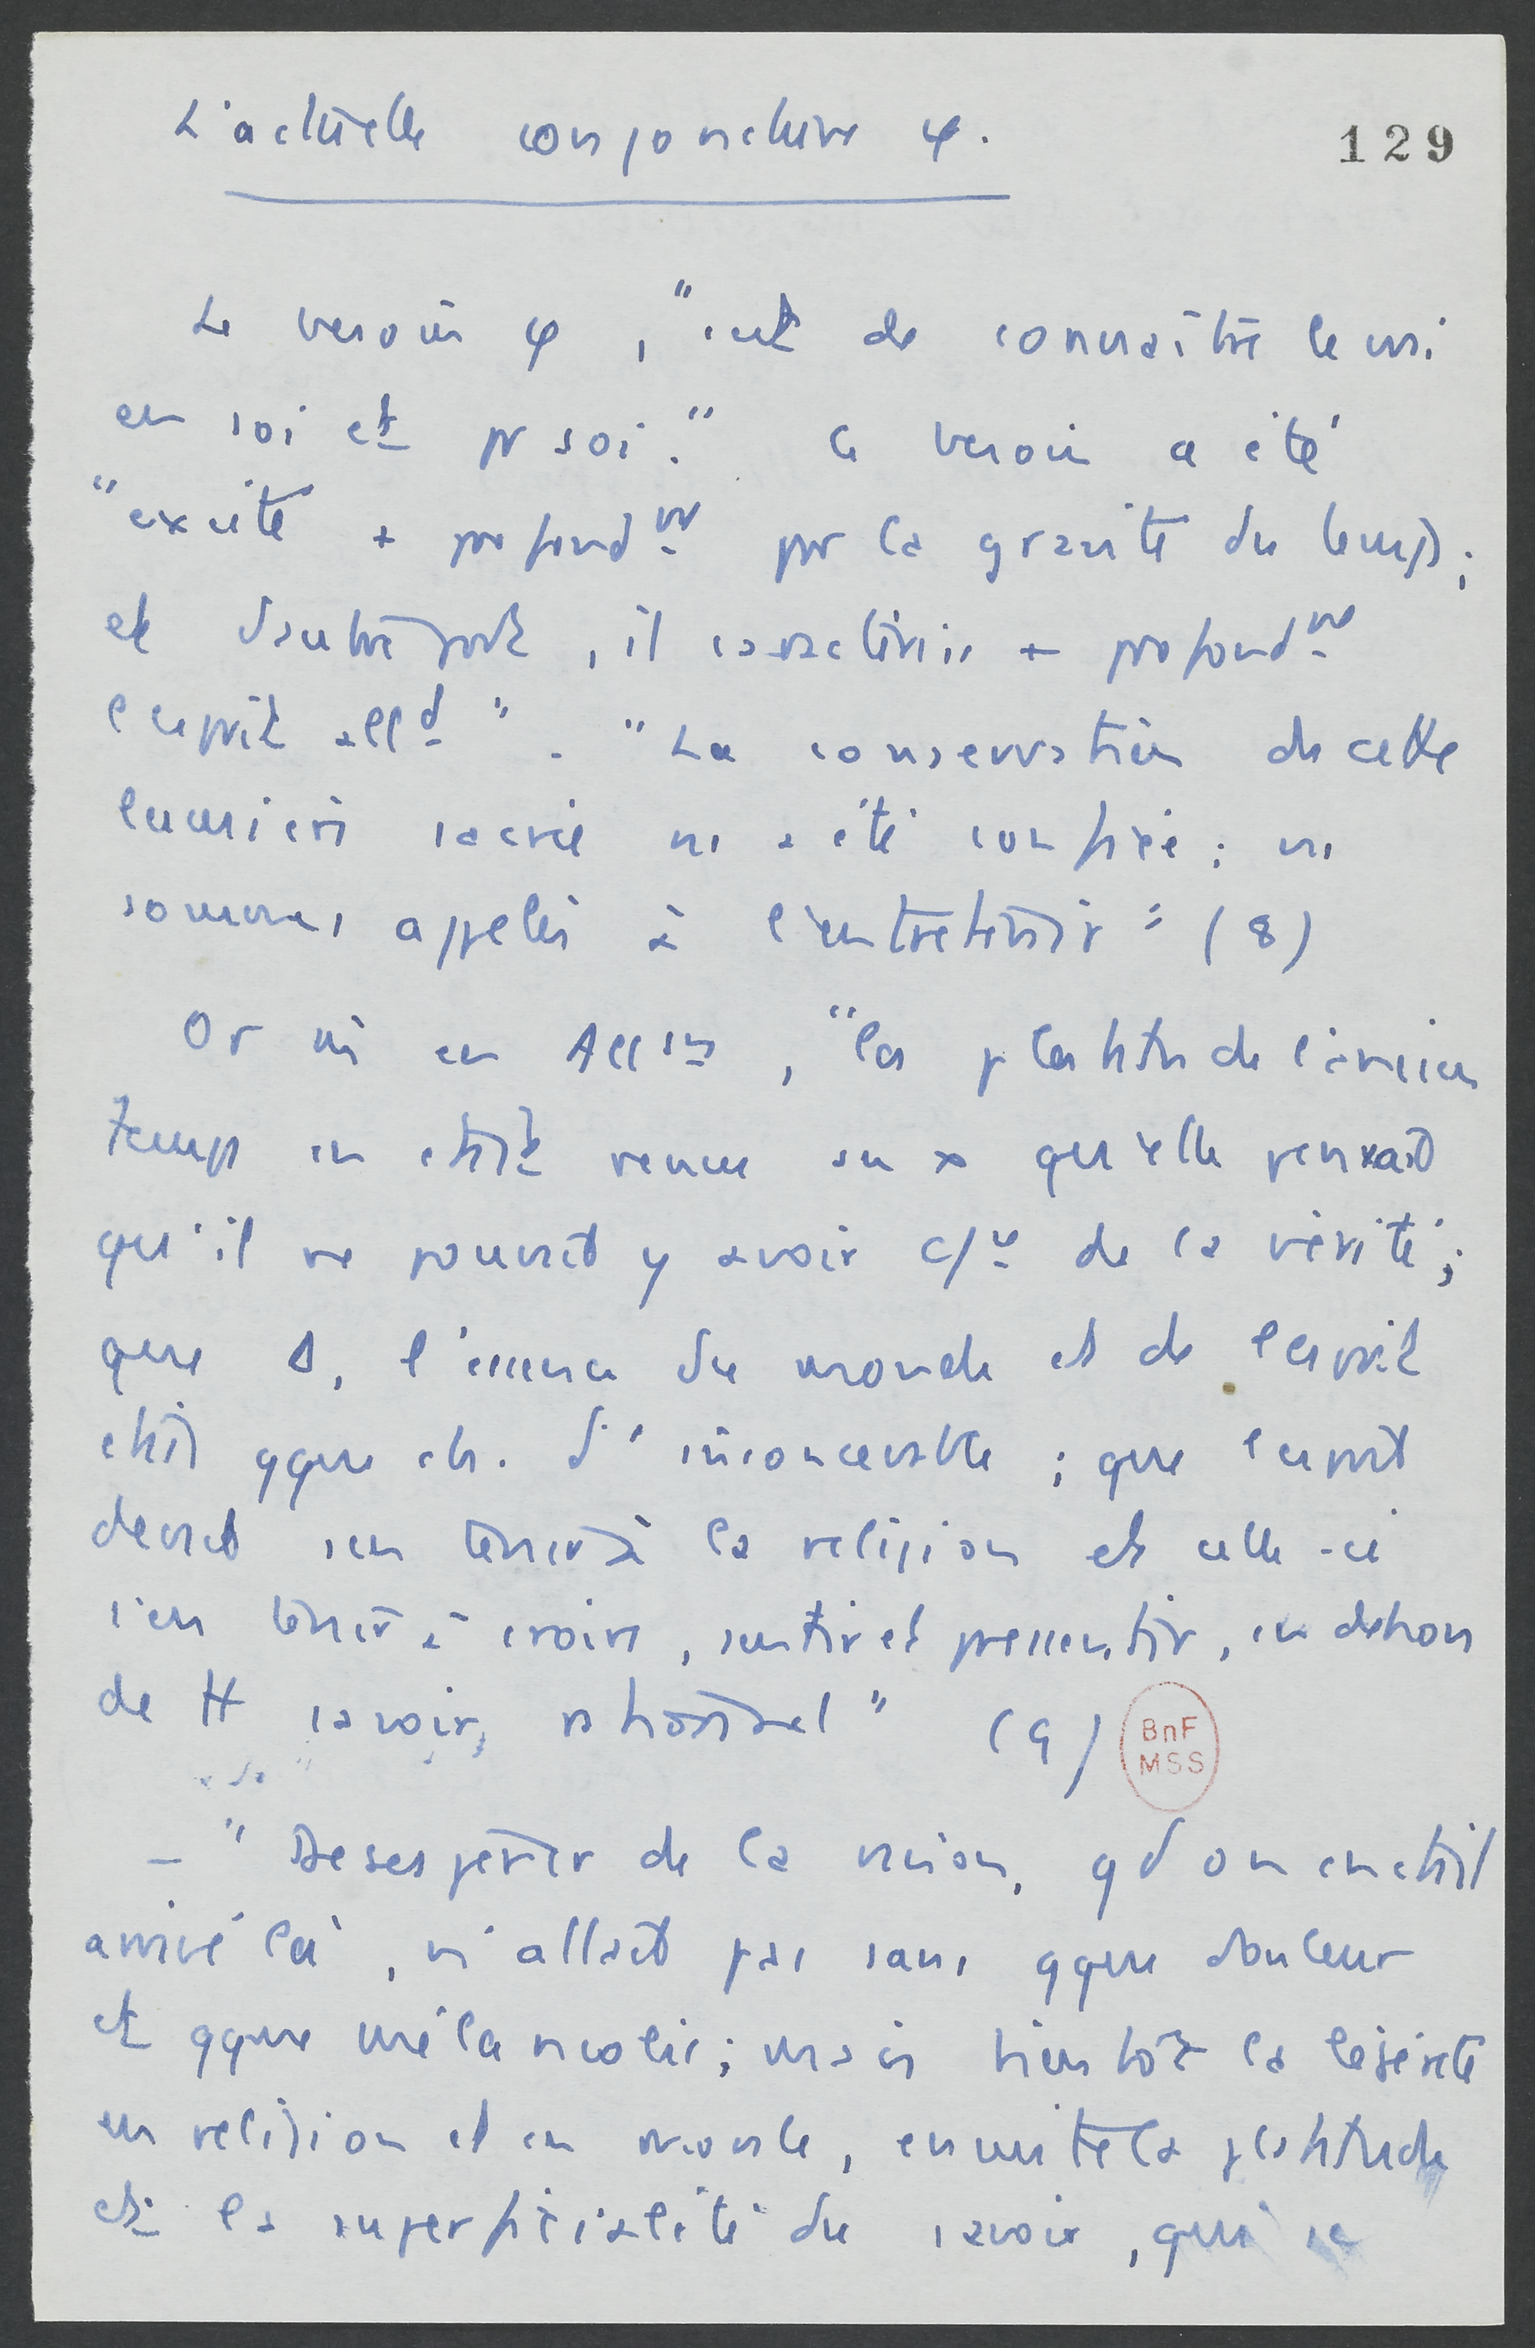 L'actuelle conjoncture φ.
129
Le besoin φ, "c'est de connaître le vrai
en soi et pr soi." Ce besoin a été
"excité + profondmt par la gravité du temps;
et d'autre part, il caractérise + profondmt
l'esprit alld". "La conservation de cette
lumière sacrée ns a été confiée; ns
sommes appelés à l'entretenir" (8)
Or ici en Allm, "la platitude de l'ancien
temps en était venue au qu'elle pensait
qu'il ne pouvait y avoir de la vérité;
que D, l'essence du monde et de l'esprit
était qque ch. d'inconcevable; que l'esprit
devait s'en tenir à la religion et celle-ci
s'en tenir à croire, sentir et pressentir, en dehors
de tt savoir rationnel" (9)
BnF
MSS
- "Desespérer de la raison, qd on en était
arrivé là, n'allait pas sans qque douleur
et qque mélancolie; mais bientôt la légèreté
en religion et en morale, ensuite la platitude
et la superficialité du savoir, qui se